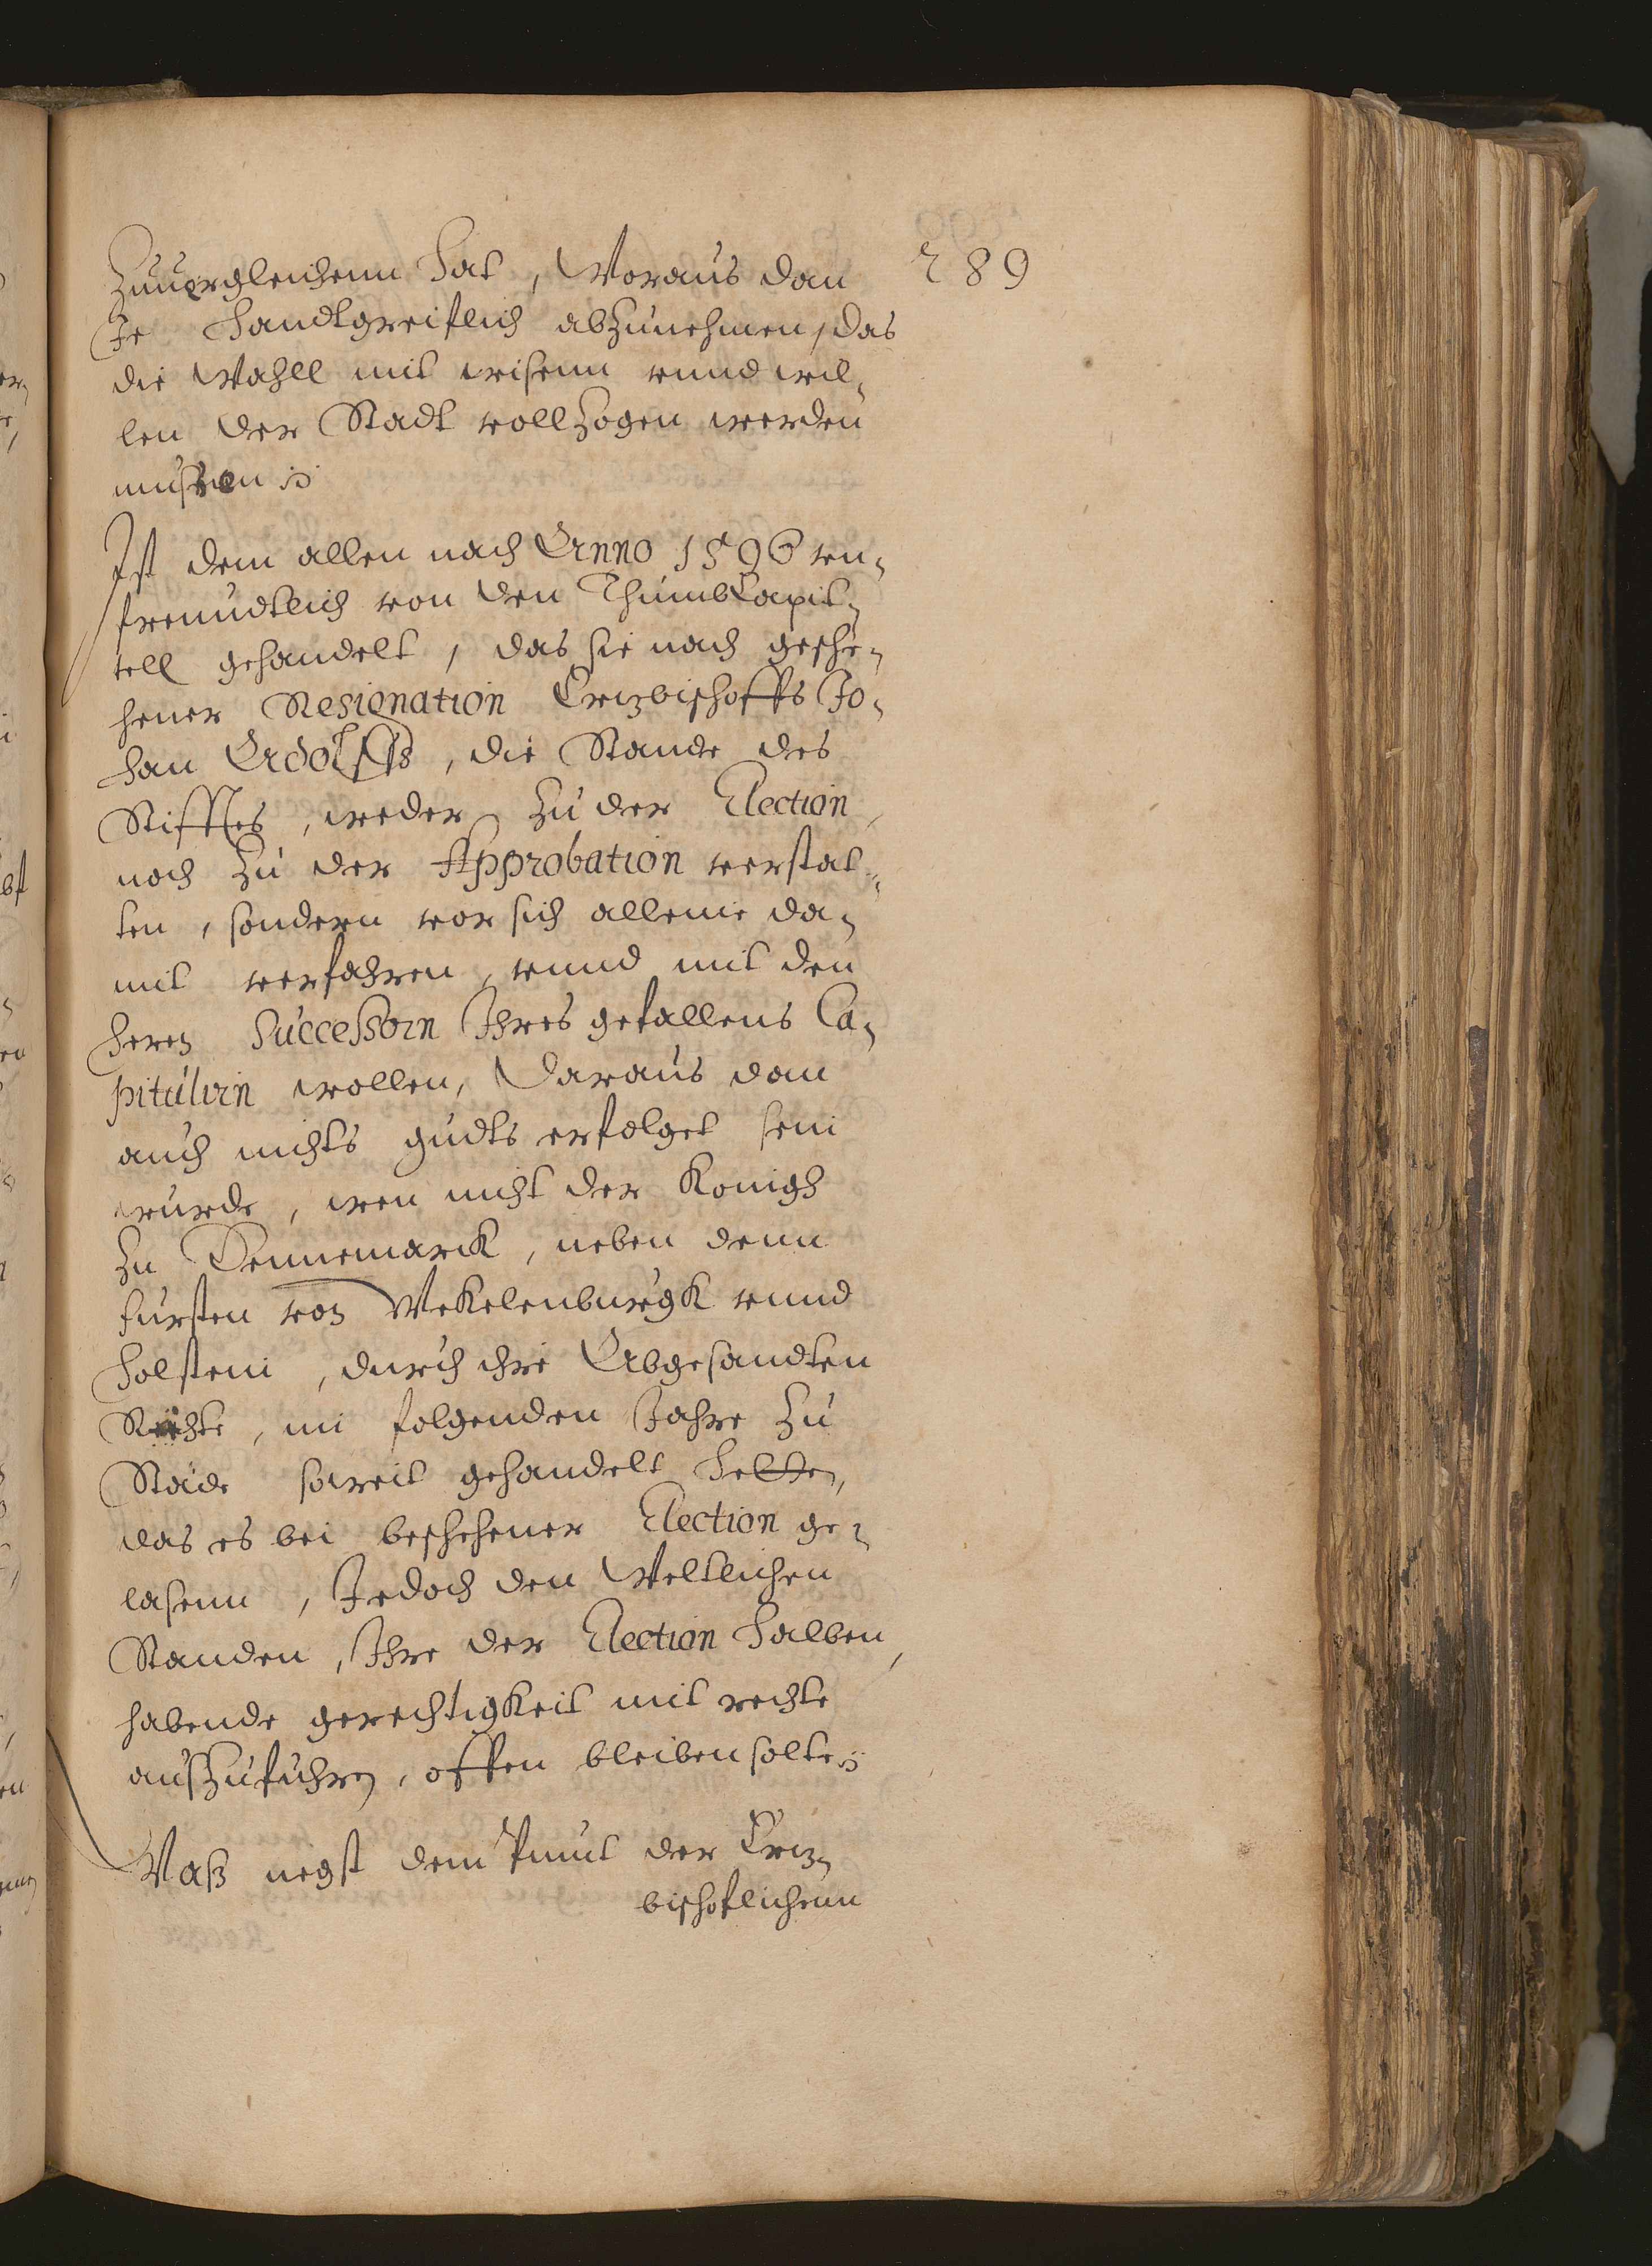 289
Zuuergleichenn hat, Woraus dan
Je handtgreiflich abzunehmen, das
die Wahll mit wisenn vnnd wil,
len der Stadt vollzogen werden
mussen
Ist dem allen nach Anno 1596 vn,
freundtlich von den ThumbCapit,
tell gehandelt, das sie nach geschе,
hener Resignation Ertzbischoffs Jo,
han Adolffs, die Stande des
Stifftes, weder zu der Election
noch zu der Approbation verstat,
ten, sondern vor sich alleine da,
mit verfahren, vnnd mit den
heren Successorn Ihres gefallens Ca,
pitulirn wollen, Daraus dan
auch nichts gudts erfolget sein
wurde, wen nicht der Konigh
zu Dennemarck, neben denn
fursten von Mekelenburgk vnnd
Holstein, durch ihre Abgesandten
Rähte, im folgenden Jahre zu
Stade soweit gehandelt hetten,
das es bei beschehener Election ge,
lasenn, Jedoch den Weltlichen
Standen, Ihre der Election halben,
habende gerechtigkeit mit rechte
auszufuhren, offen bleiben solte
Waß negst dem Punct der Ertz,
bischoflichenn